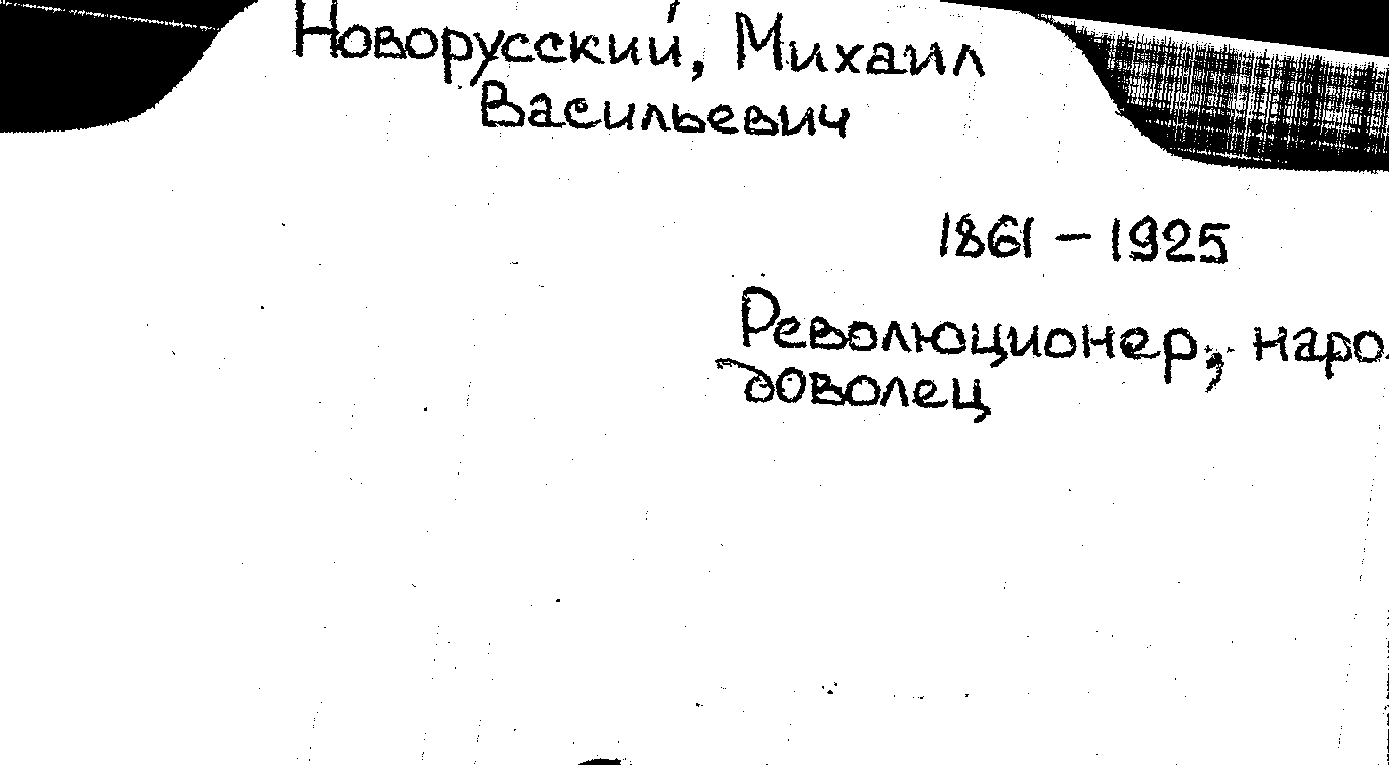 Новорусский, Михаил
Васильевич
1861 – 1925
Революционер, наро
доволец